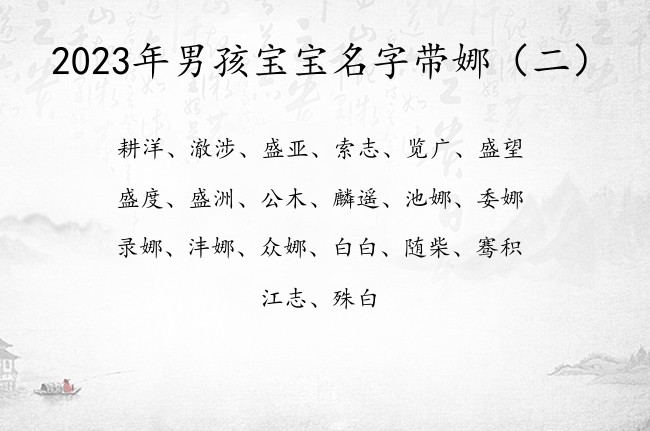 2023年男孩宝宝名字带娜（二）
耕洋、澈涉、盛亚、索志、览广、盛望
盛度、盛洲、公木、麟遥、池娜、委娜
录娜、沣娜、众娜、白白、随柴、骞积
江志、殊白